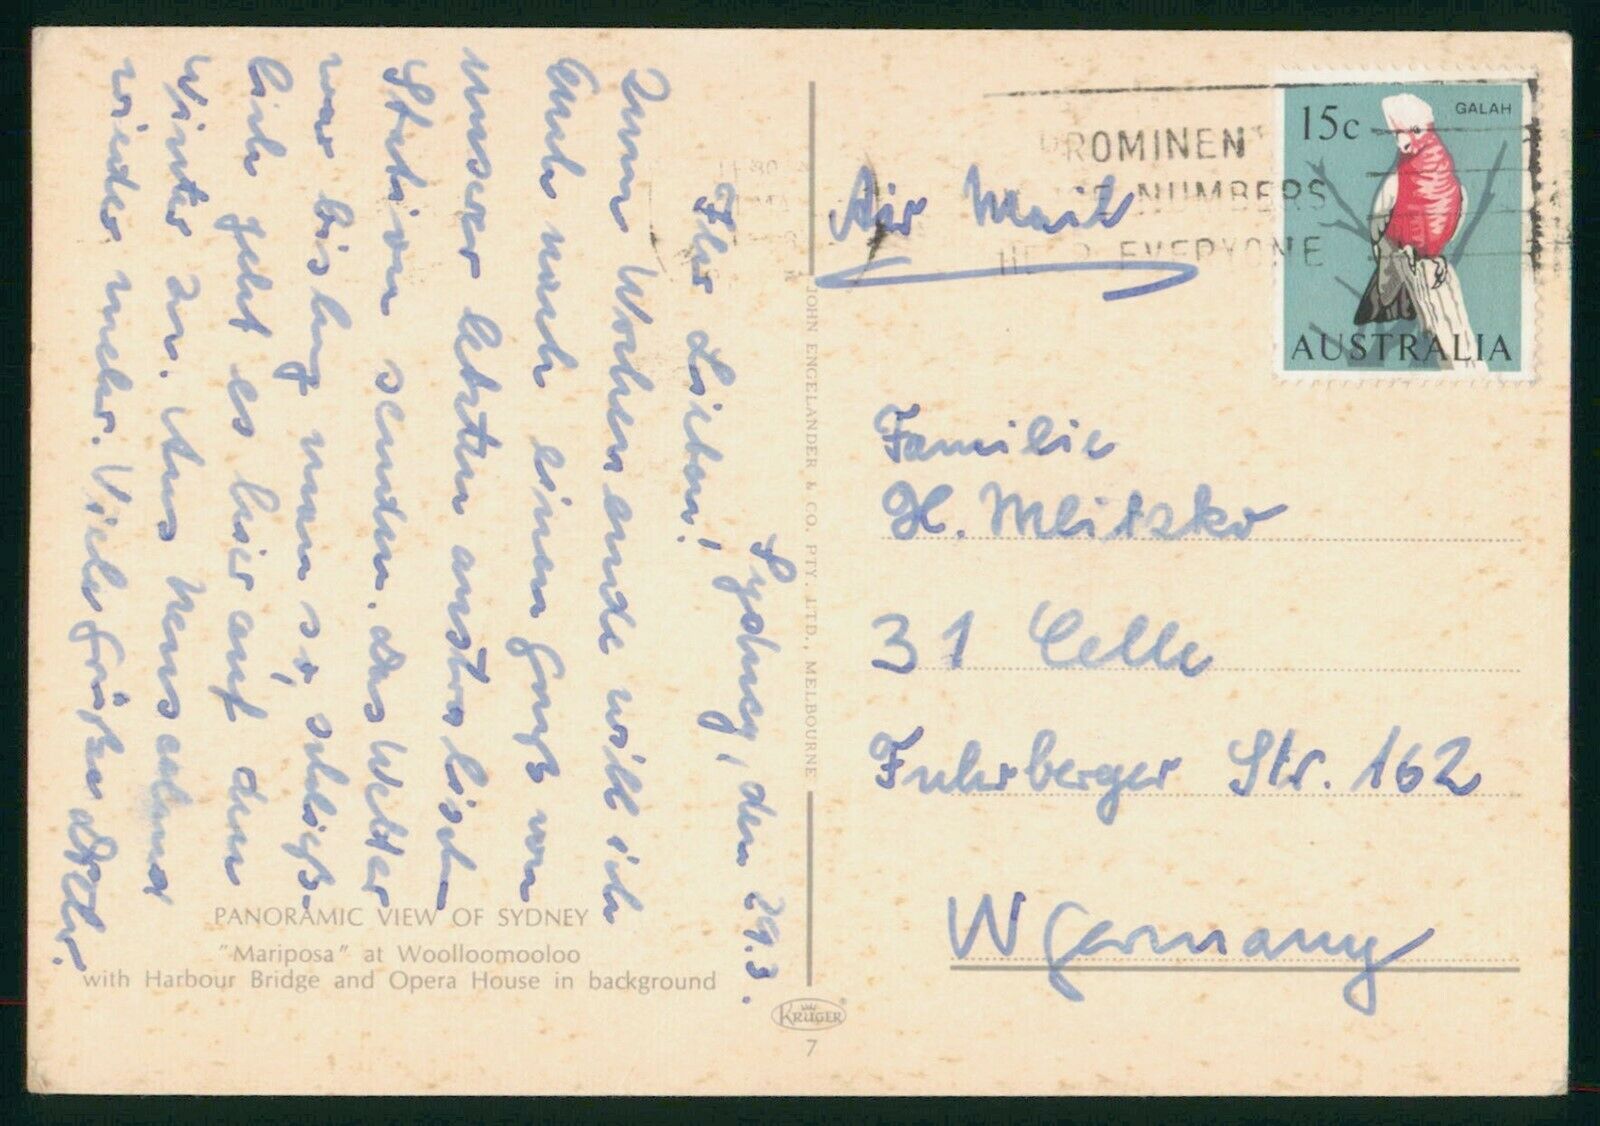 Sydney, den 29.3.
Ihr Lieben!
Zum Wochenende will ich
Euch noch einen Gruß von
unserer letzten australischen
Station senden. Das Wetter
war bislang nun so, schließ-
lich geht es hier auf den
Winter zu. Aus Neuseeland
wieder mehr. Viele Grüße
PANORAMIC VIEW OF SYDNEY
"Mariposa" at Woolloomooloo
with Harbour Bridge and Opera House in background
JOHN ENGELANDER & CO. PTY. LTD., MELBOURNE
KRÜGER
7
Air Mail
ROMINEN
NUMBERS
EVERYONE
15c
GALAH
AUSTRALIA
Familie
H. Mlitzko
31 Celle
Fuhrberger Str. 162
W Germany